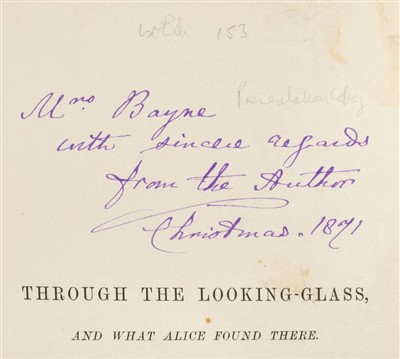 153
Presentation Copy
Mrs Bayne
with sincere regards
from the Author
Christmas. 1871
THROUGH THE LOOKING-GLASS,
AND WHAT ALICE FOUND THERE.